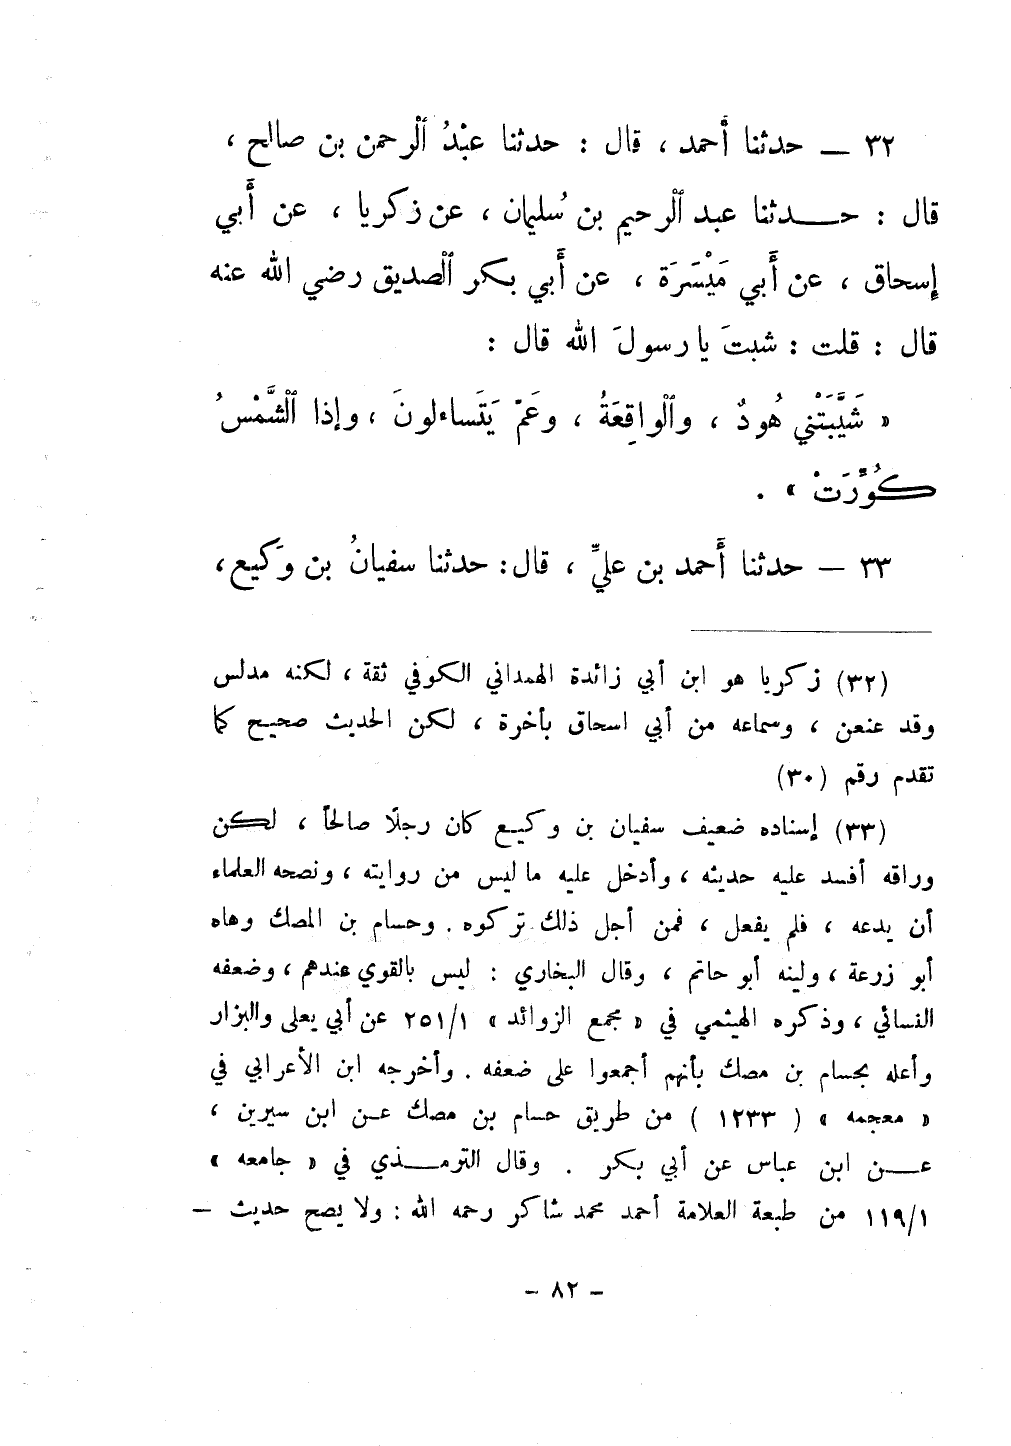 ٣٢ — حدثنا أَحمد ، قال : حدثنا عبْدُ ٱلرحمن بن صالح ،
قال : حـــدثنا عبد ٱلرحيم بن سُليمان ، عن زكريا ، عن أَبي
إسحاق ، عن أَبي مَيْسَرَة ، عن أَبي بكر ٱلصديق رضي الله عنه
قال : قلت : شبتَ يا رسولَ الله قال :
« شَيَّبَتْني هُودٌ ، وٱلواقِعَةُ ، وعَمّ يَتَساءلونَ ، وإذا ٱلشَّمْسُ
كُوِّرَتْ » .
٣٣ — حدثنا أَحمد بن عليٍّ ، قال : حدثنا سفيانُ بن وَكيع ،
(٣٢) زكريا هو ابن أبي زائدة الهمداني الكوفي ثقة ، لكنه مدلس
وقد عنعن ، وسماعه من أبي اسحاق بأخرة ، لكن الحديث صحيح كما
تقدم رقم (٣٠)
(٣٣) إسناده ضعيف سفيان بن وكيع كان رجلًا صالحاً ، لكن
وراقه أفسد عليه حديثه ، وأدخل عليه ما ليس من روايته ، ونصحه العلماء
أن يدعه ، فلم يفعل ، فمن أجل ذلك تركوه . وحسام بن المصك وهاه
أبو زرعة ، ولينه أبو حاتم ، وقال البخاري : ليس بالقوي عندهم ، وضعفه
النسائي ، وذكره الهيثمي في « مجمع الزوائد » ٢٥١/١ عن أبي يعلى والبزار
وأعله بحسام بن مصك بأنهم أجمعوا على ضعفه . وأخرجه ابن الأعرابي في
« معجمه » ( ١٢٣٣ ) من طريق حسام بن مصك عن ابن سيرين ،
عـــن ابن عباس عن أبي بكر . وقال الترمـــذي في « جامعه »
١١٩/١ من طبعة العلامة أحمد محمد شاكر رحمه الله : ولا يصح حديث —
- ٨٢ -